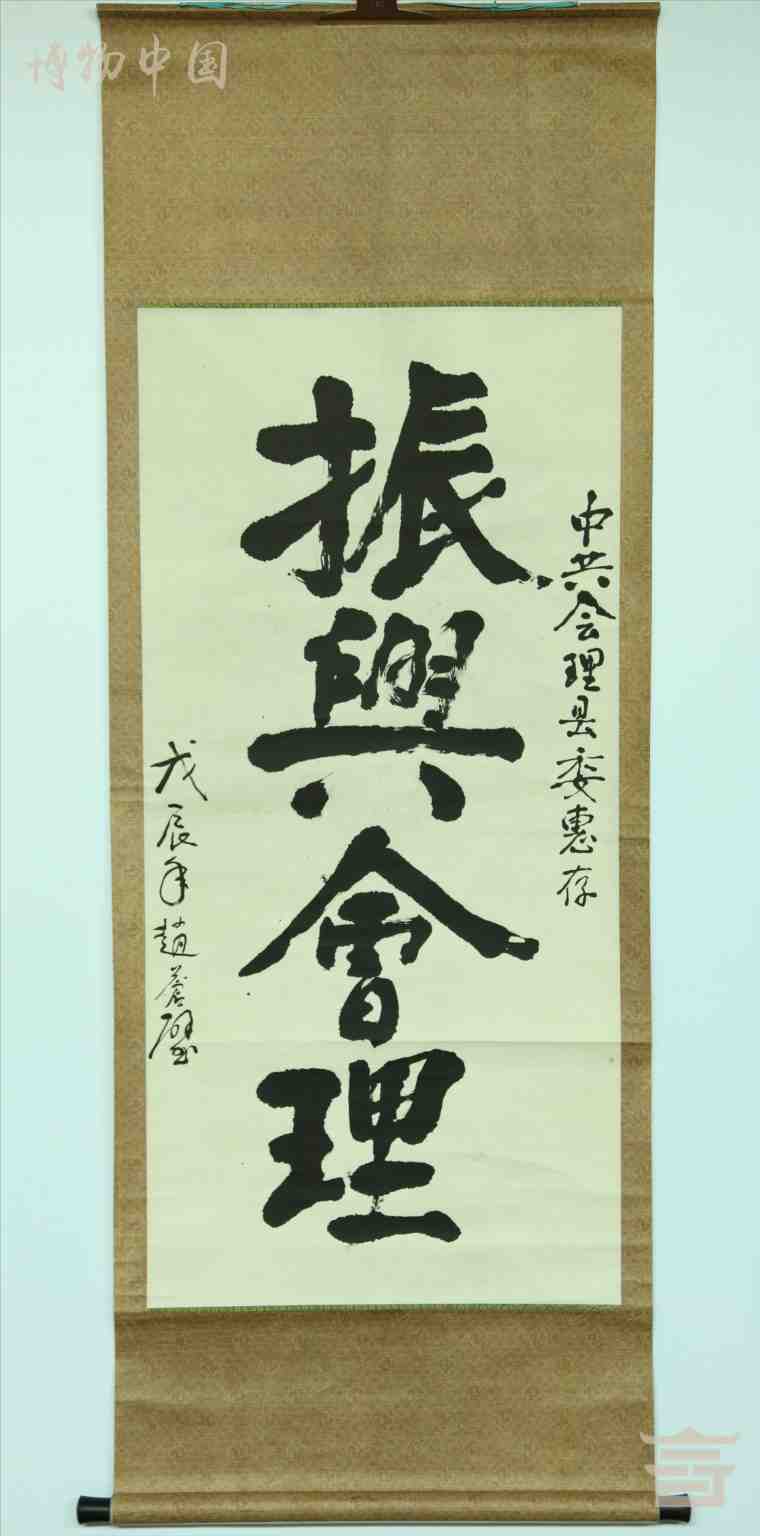 博物中国
中共会理县委惠存
振興會理
戊辰年趙蒼璧